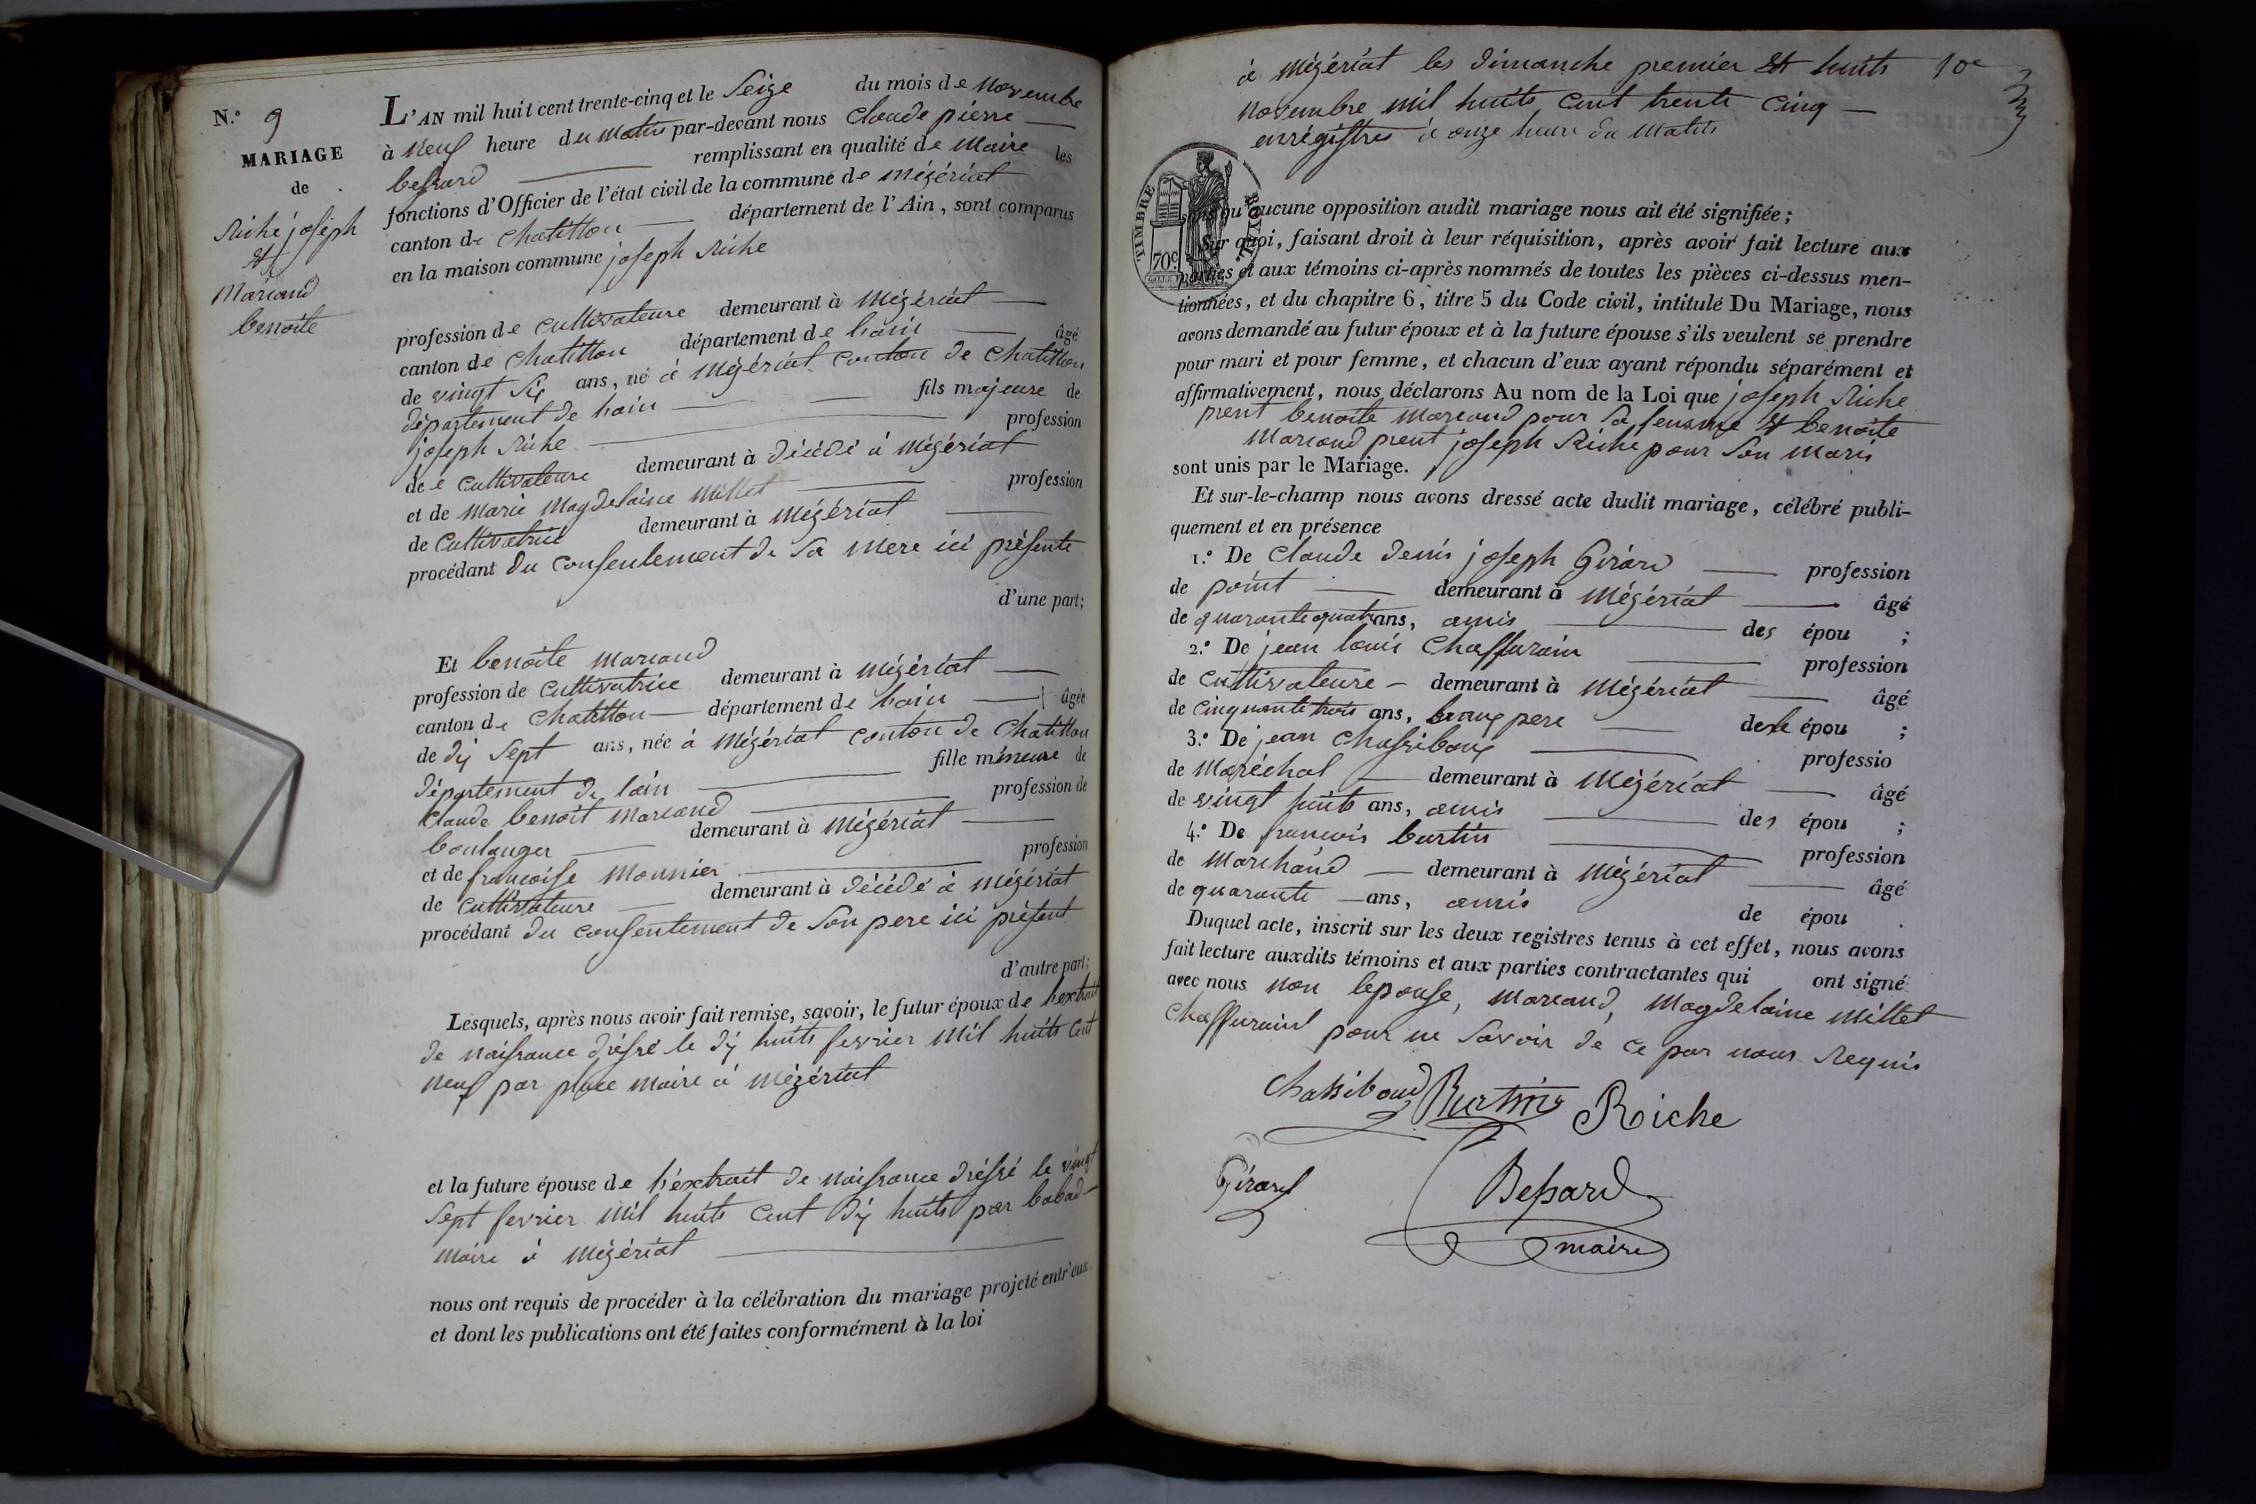 N.° 9
MARIAGE
de
Riche joseph
Et
Marcaud
benoite
L'AN mil huit cent trente-cinq et le Seize du mois de Novembre
à Neuf heure du Matin par-devant nous claude pierre
bessard remplissant en qualité de Maire les
fonctions d'Officier de l'état civil de la commune de Mézériat
canton de Chatillon département de l'Ain, sont comparus
en la maison commune joseph Riche
profession de Cultivateure demeurant à Mézériat
canton de Chatillon département de lain âgé
de vingt Six ans, né à Mézériat Canton de Chatillon
département de lain fils majeure de
joseph Riche profession
de Cultivateure demeurant à décédé à Mézériat
et de Marie Magdelaine Millet profession
de Cultivatrice demeurant à Mézériat
procédant du Consentement de Sa Mere ici présente
d'une part;
Et benoite Marcaud
profession de Cultivatrice demeurant à Mézériat
canton de Chatillon département de lain âgée
de dix Sept ans, née à Mézériat Canton de Chatillon
département de lain fille mineure de
Claude benoit Marcaud profession de
boulanger demeurant à Mézériat
et de françoise Monnier profession
de Cultivateure demeurant à décédé à Mézériat
procédant du consentement de Son pere ici présent
d'autre part;
Lesquels, après nous avoir fait remise, savoir, le futur époux de l'extrait
de naissance dréssé le dix huits fevrier Mil huits Cent
Neuf par place Maire à Mézériat
et la future épouse de l'éxtrait de naissance dréssé le vingt
Sept fevrier Mil huits Cent dix huits par babad
Maire à Mézériat
nous ont requis de procéder à la célébration du mariage projeté entr'eux
et dont les publications ont été faites conformément à la loi
à Mézériat les dimanche premier Et huits 10e
Novembre Mil huits Cent trente Cinq
enrégistres à onze heure du Matin
TIMBRE ROYAL
70c
sans qu'aucune opposition audit mariage nous ait été signifiée;
Sur quoi, faisant droit à leur réquisition, après avoir fait lecture aux
parties et aux témoins ci-après nommés de toutes les pièces ci-dessus men-
tionnées, et du chapitre 6, titre 5 du Code civil, intitulé Du Mariage, nous
avons demandé au futur époux et à la future épouse s'ils veulent se prendre
pour mari et pour femme, et chacun d'eux ayant répondu séparément et
affirmativement, nous déclarons Au nom de la Loi que joseph Riche
prent benoite Marcaud pour Sa femme Et benoite
Marcaud prent joseph Riche pour Son Maris
sont unis par le Mariage.
Et sur-le-champ nous avons dressé acte dudit mariage, célébré publi-
quement et en présence
1.° De Claude denis joseph Girard profession
de point demeurant à Mézériat âgé
de quarante quatre ans, amis des épou ;
2.° De jean louis Chaffurain profession
de Cultivateure demeurant à Mézériat âgé
de Cinquante trois ans, beaux pere de le épou ;
3.° De jean Chassiboux professio
de Maréchal demeurant à Mézériat âgé
de vingt huits ans, amis des épou ;
4.° De francois burtin profession
de Marchand demeurant à Mézériat âgé
de quarante ans, amis de épou .
Duquel acte, inscrit sur les deux registres tenus à cet effet, nous avons
fait lecture auxdits témoins et aux parties contractantes qui ont signé
avec nous Non lepouse, Marcaud, Magdelaine Millet
Chaffuraint pour ne Savoir de ce par nous Requis
Chassiboud Burtin Riche
Girard Bessard
maire